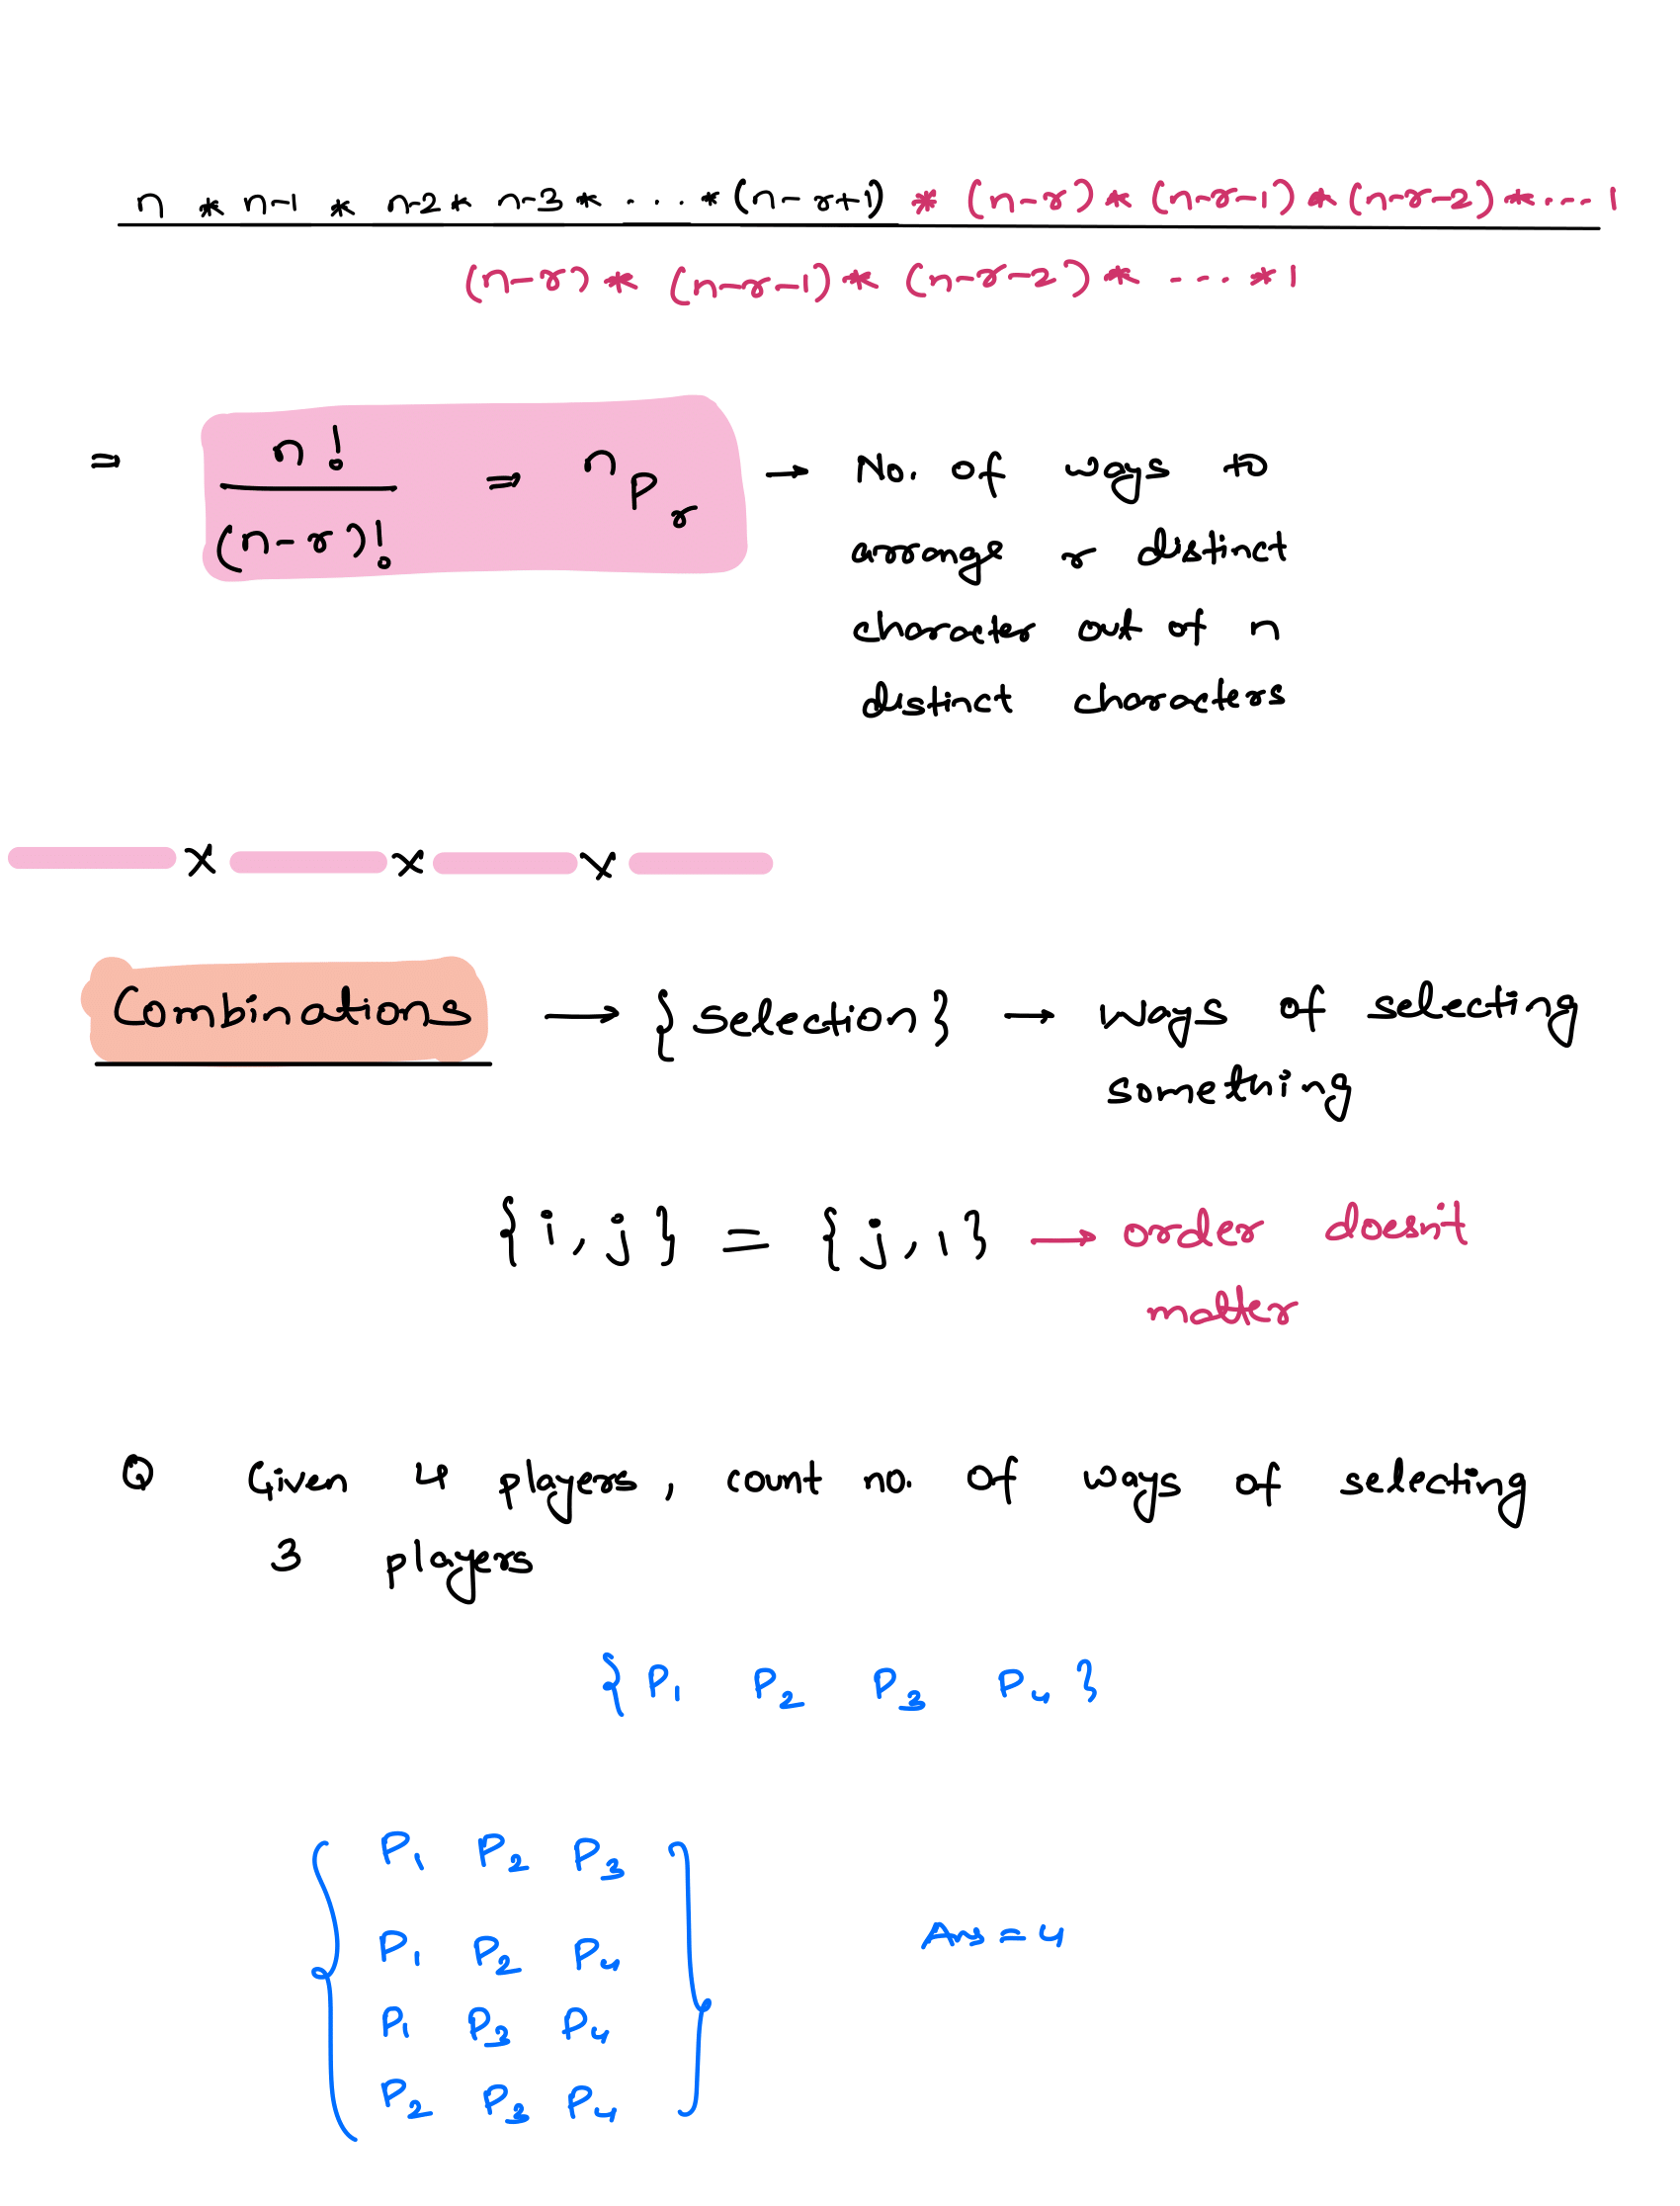 n * n-1 * n-2 * n-3 * ..... * (n-r+1) * (n-r) * (n-r-1) * (n-r-2) * .... 1
(n-r) * (n-r-1) * (n-r-2) * ..... * 1
= n! / (n-r)! = nPr → No. of ways to
arrange r distinct
character out of n
distinct characters
x x x
Combinations → {selection} → ways of selecting
something
{i, j} = {j, i} → order doesn't
matter
Q Given 4 players, count no. of ways of selecting
3 players
{ P1 P2 P3 P4 }
P1 P2 P3
P1 P2 P4 Ans = 4
P1 P3 P4
P2 P3 P4